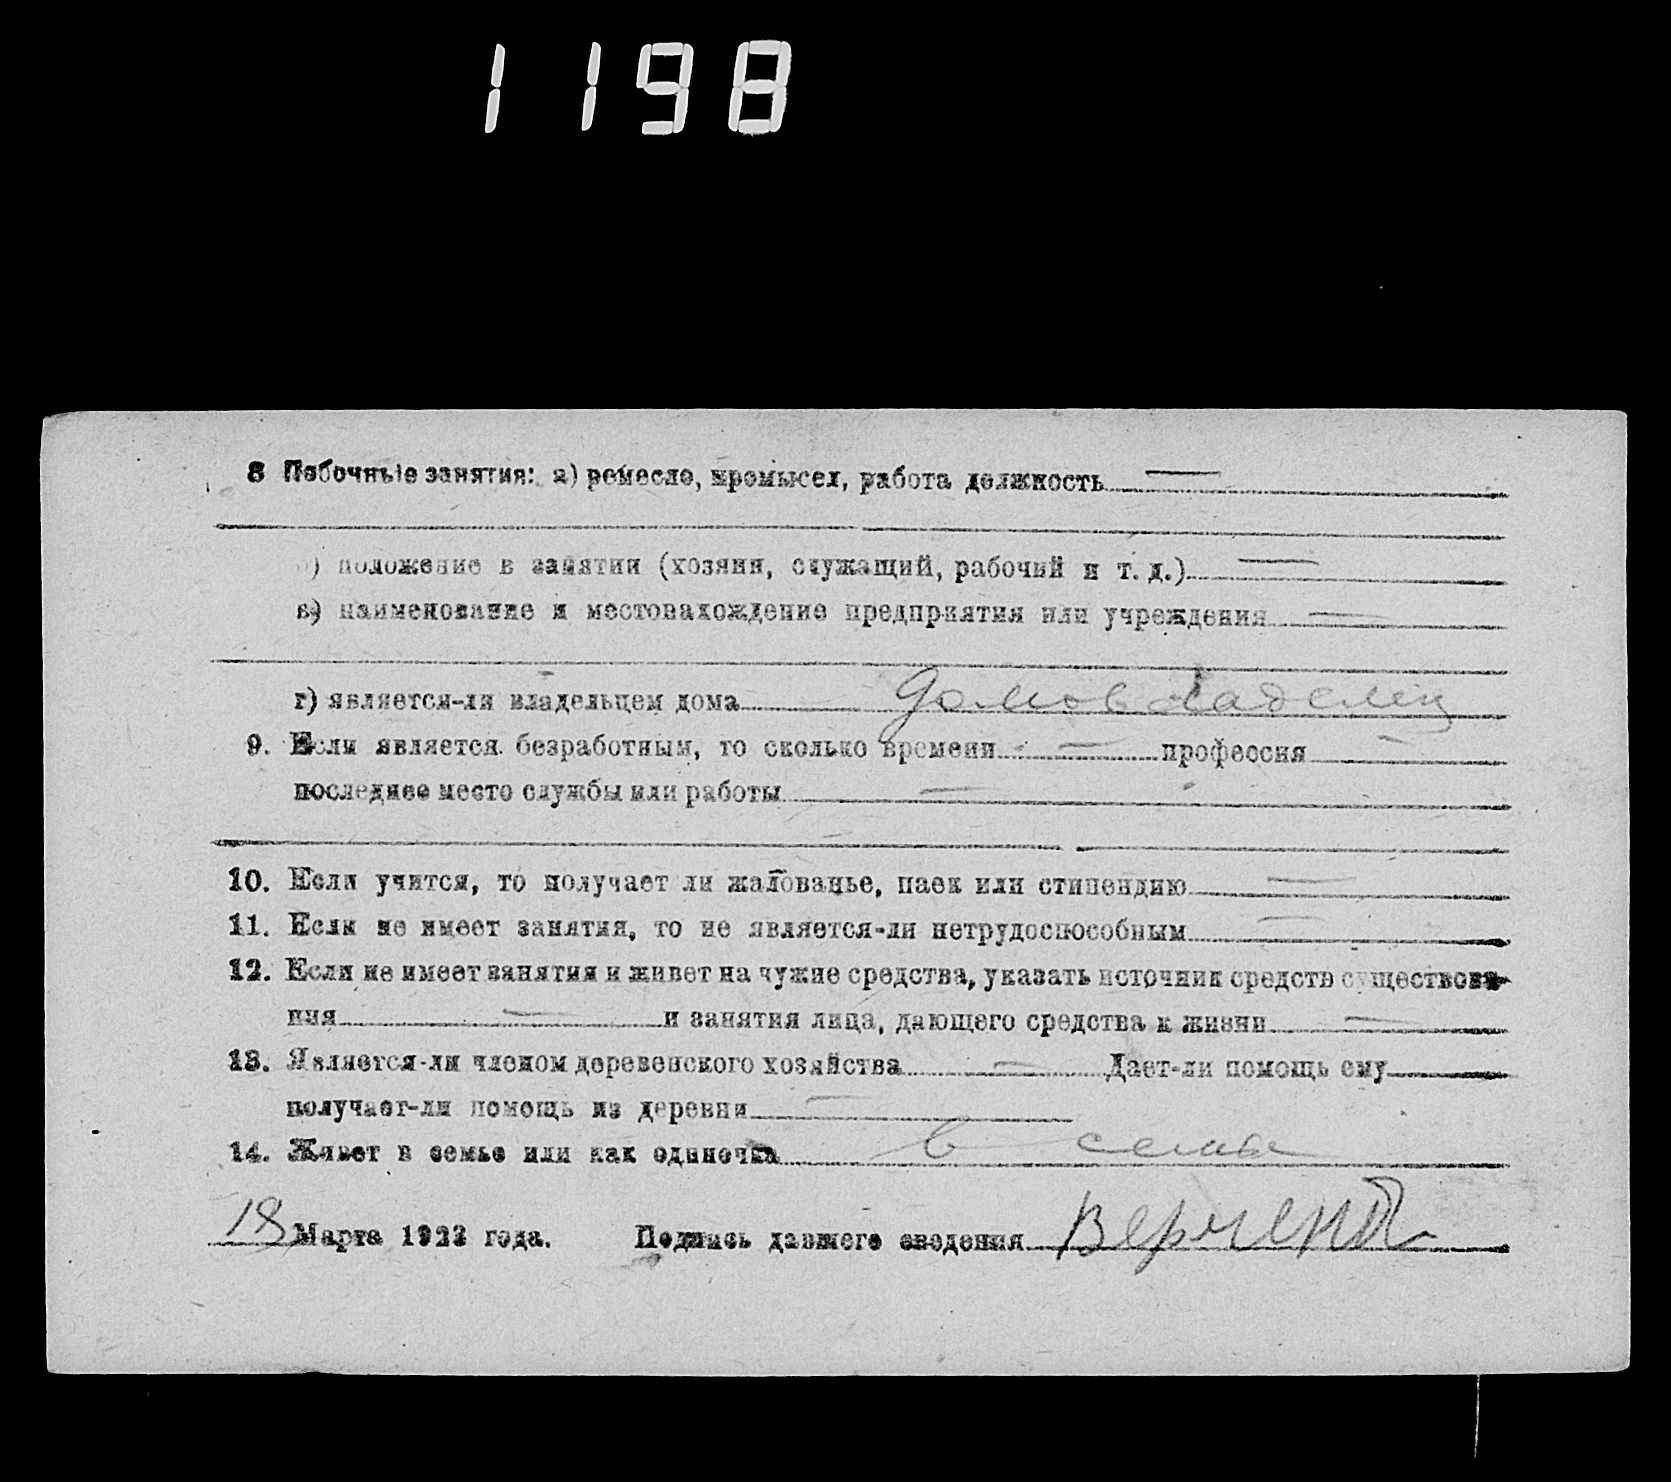 1198
8 Побочные занятия: а) ремесло, промысел, работа должность —
б) положение в занятии (хозяин, служащий, рабочий и т. д.) —
в) наименование и местонахождение предприятия или учреждения —
г) является-ли владельцем дома домовладелец
9. Если является безработным, то сколько времени — профессия —
последнее место службы или работы —
10. Если учится, то получает ли жалованье, паек или стипендию —
11. Если не имеет занятия, то не является-ли нетрудоспособным —
12. Если не имеет занятия и живет на чужие средства, указать источник средств существова-
ния — и занятия лица, дающего средства к жизни —
13. Является-ли членом деревенского хозяйства — Дает-ли помощь ему
получает-ли помощь из деревни —
14. Живет в семье или как одиночка в семье
18 Марта 1923 года. Подпись давшего сведения